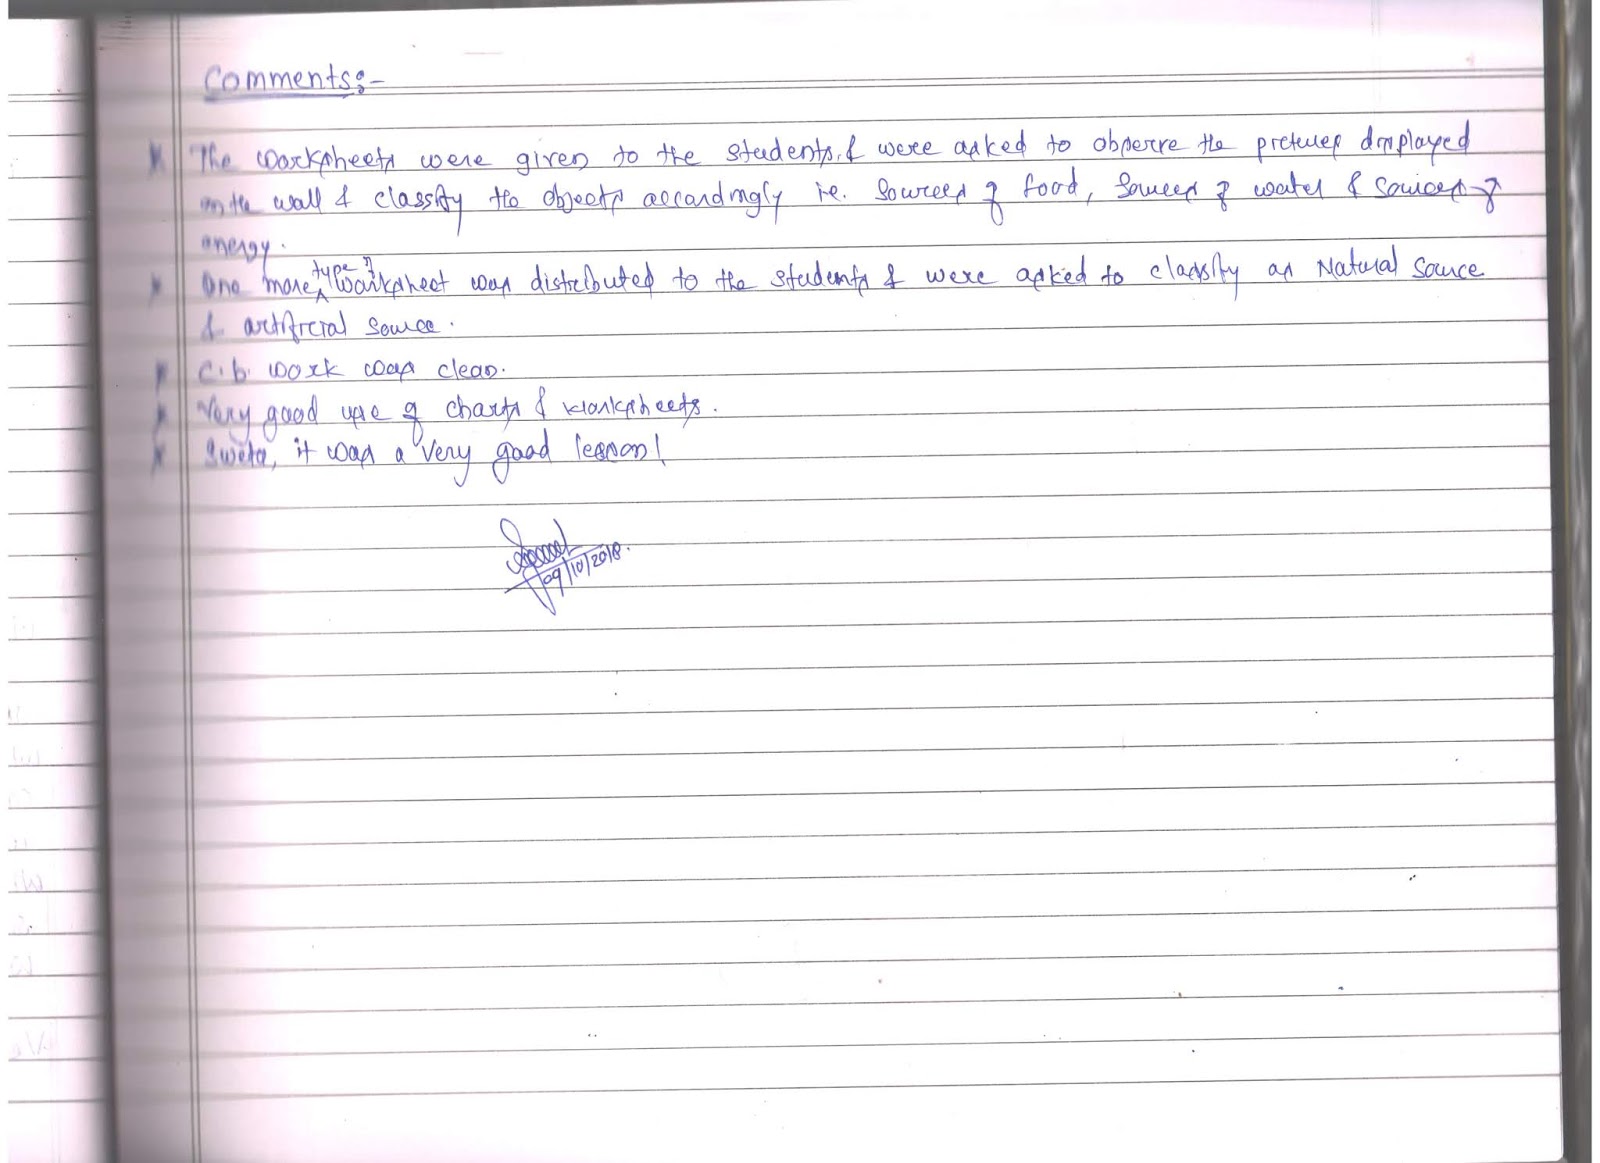 Comments:-
* The worksheets were given to the students & were asked to observe the pictures displayed
on the wall & classify the objects accordingly i.e. Sources of food, Sources of water & Sources of
energy.
* One more type of worksheet was distributed to the students & were asked to classify as Natural Source
& artificial source.
* C.b. work was clean.
* Very good use of charts & worksheets.
* Sweta, it was a very good lesson!
09/10/2018.